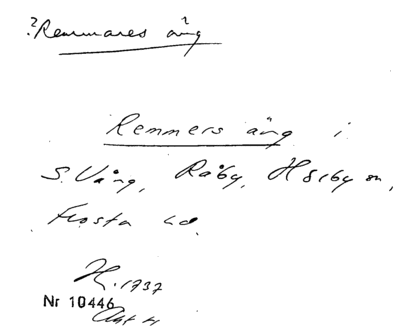 ?Remmares äng
Remmers äng i
S. Vång, Råby, Hörby sn,
Frosta hd.
H. 1737
Nr 10446
Akt 4